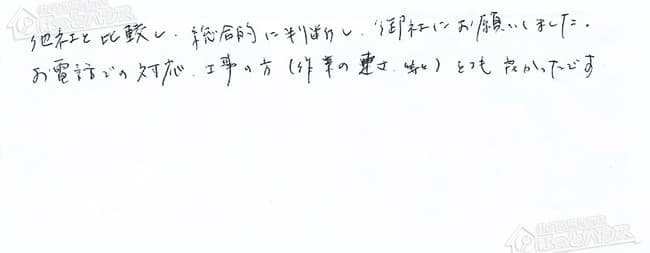 他社と比較し、総合的に判断し、御社にお願いしました。
お電話での対応、工事の方(作業の速さ、等)とても良かったです